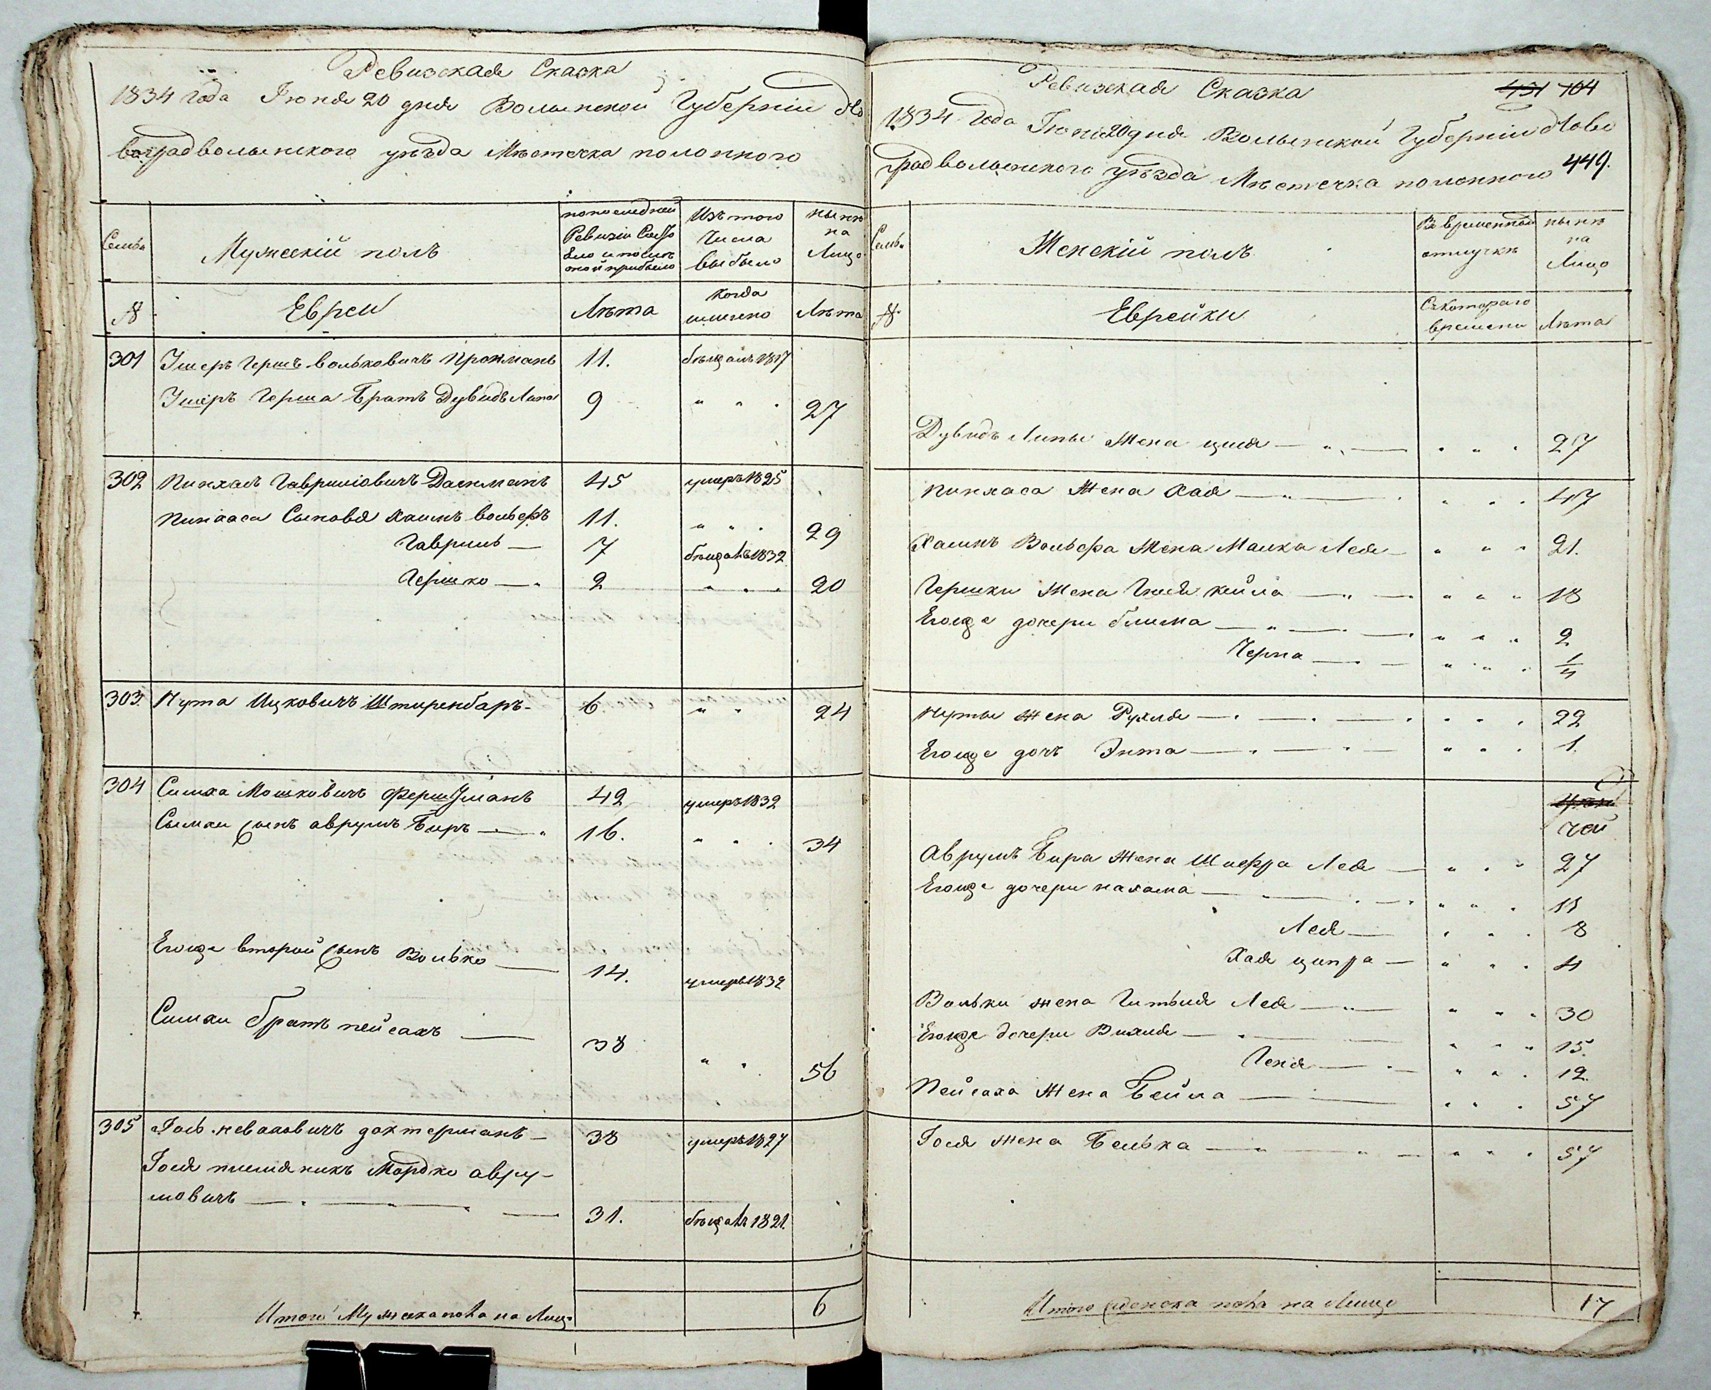 Ревизская Сказка
1834 года Июня 20 дня Волынской Губернии Но
воградволынского уѣзда Мѣстечка полонного
Семья
Мужескій полъ
по последней Ревизіи Состо яло и после оной прибыло
Изъ того Числа выбыло
ныне на Лицо
№
Евреи
Лѣта
Когда имянно
Лѣта
301 Ушеръ Гершъ Вольковичъ 11. бѣжалъ 1817
Ушеръ Герша Братъ Дувидъ Липа 9 " " . 27
302 Пинхасъ Гавриловичъ 45 умеръ 1825
Пинхаса Сыновя Хаимъ Вольфъ 11. " " . 29
Гаврилъ — 7 бѣжалъ 1832
Гершко — 2 " . . 20
303. Нута Ицковичъ Штиренбаръ 6 " " 24
304 Симха Мошковичъ 42 умеръ 1832
Симхи Сынъ Аврумъ Беръ — 16. " . . 34
Егоже второй Сынъ Волько — 14. умеръ 1832
Симхи братъ Пейсахъ — 38 " . 56
305 38 умеръ 1827
племяникъ Мордко Авру-
мовичъ — 31. бѣжалъ 1821.
Итого Мужеска пола на Лицо 6
Ревизская Сказка
431 104
1834 года Июня 20 дня Волынской Губерніи Ново
градволынского уѣзда Мѣстечка полонного 449.
Семья
Женскій полъ
Въ временной отлучкѣ
ныне на Лицо
№
Еврейки
Съ Котораго времени
Лѣта
Дувидъ Липы Жена Ципа — " — " . . 27
Пинхаса Жена Хая — " — . . . 47
Хаимъ Вольфа Жена Малка Лея — " " " 21.
Гершки Жена Гися Кейла — " — " " " 18
Егоже дочери Блима — " — " " . 2
Черна — " " . 1/4
Нуты Жена Рухля — . — " . . 22
Егоже дочь Энта — . — " . . 1.
чей
Аврумъ Бера Жена Шифра Лея — " . " 27
Егоже дочери Нахама — " " . 11
Лея — . . . 8
Хая Ципра — " " . 4
Вольки жена Гитля Лея — " " " 30
Егоже дочери Рихля — " " " 15.
Геня — " " . 12.
Пейсаха Жена Бейла — . . . 57
жена Бейлка — " " . 57
Итого женска пола на Лицо 17